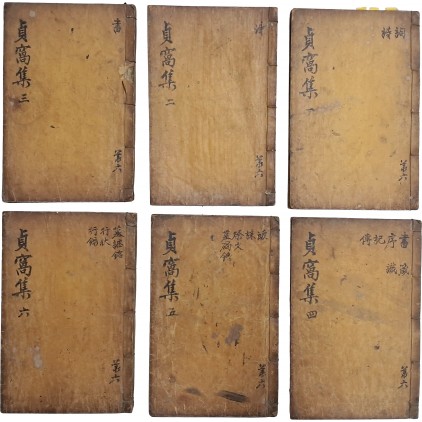 書
貞窩集 三
共六
詩
貞窩集 二
共六
詞
詩
貞窩集 一
共六
墓碣銘
行狀
行錄
貞窩集 六
共六
跋
祭文
墓碣銘
貞窩集 五
共六
書 箴
序 識
記
傳
貞窩集 四
共六